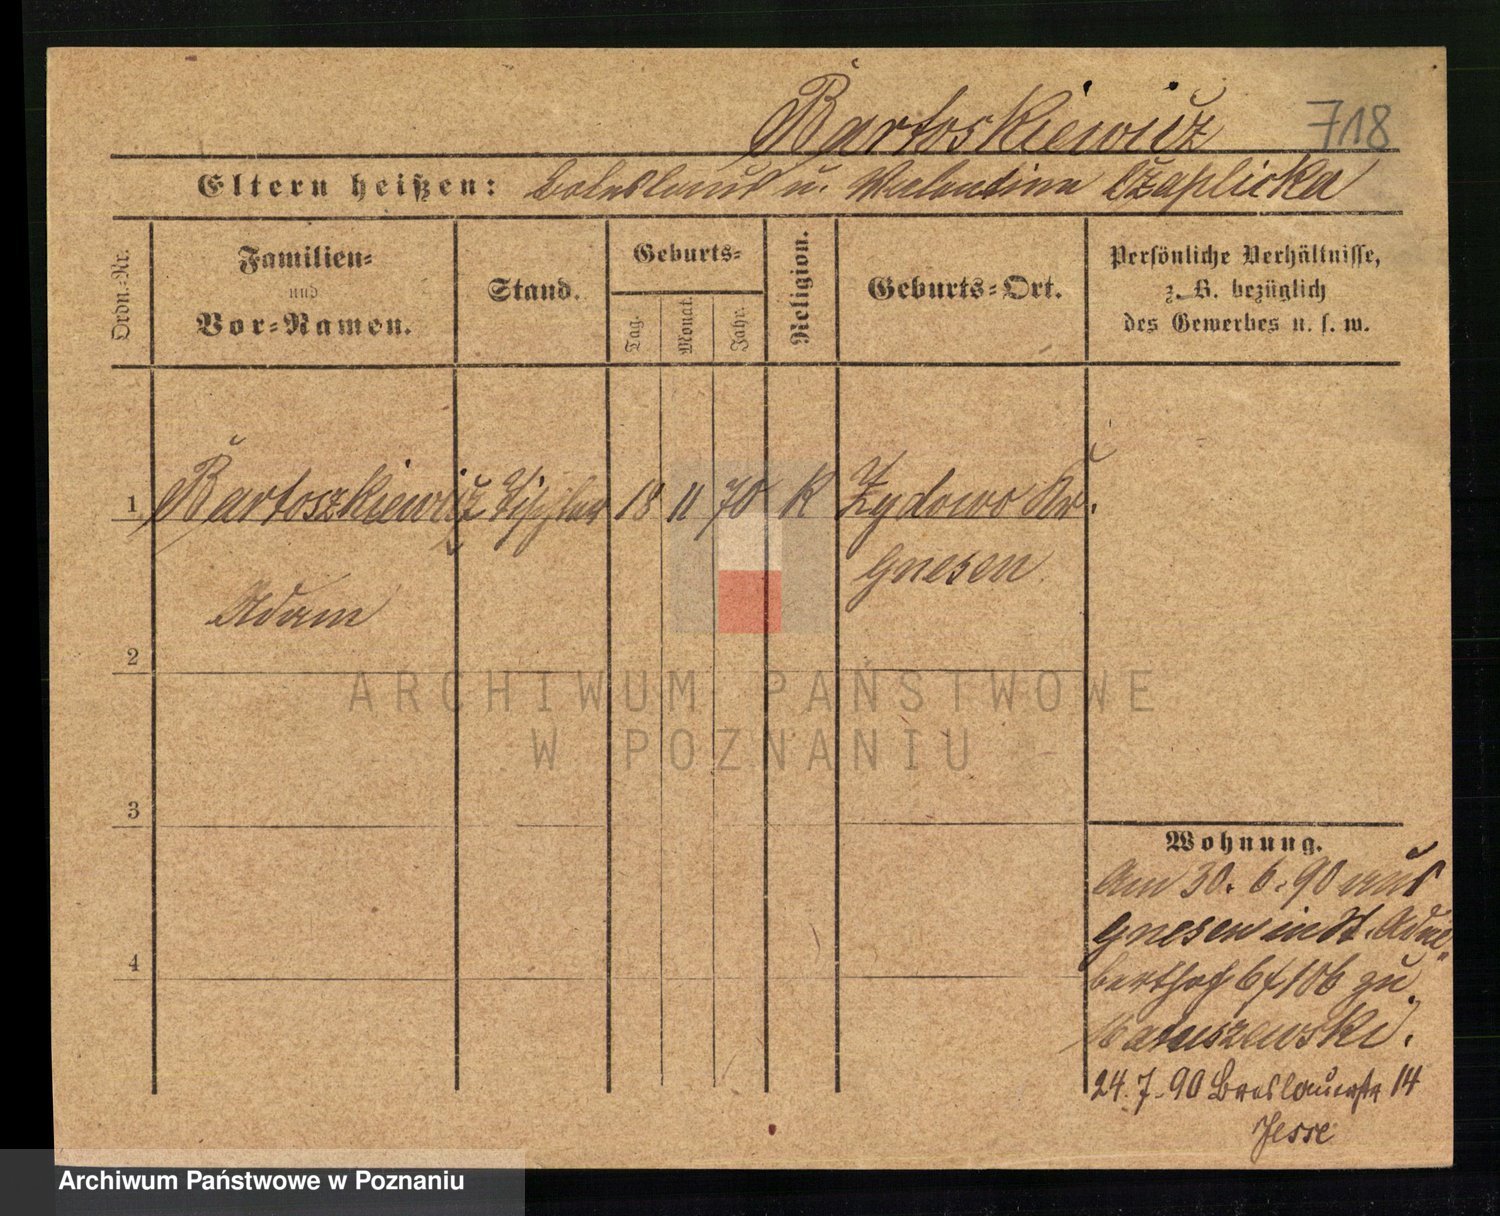 Bartoskiewicz 718
Eltern heißen: Boleslaus u. Valentina Czaplicka
Ordn.-Nr.
Familien-
und
Vor-Namen.
Stand.
Geburts-
Tag.
Monat.
Jahr.
Religion.
Geburts-Ort.
Persönliche Verhältnisse,
z. B. bezüglich
des Gewerbes u. s. w.
1 Bartoszkiewicz Tischler 18 11 70 K Zydowo Kr.
Gnesen
Adam
2
ARCHIWUM PAŃSTWOWE
W POZNANIU
3
Wohnung.
Am 30. 6. 90 aus
Gnesen in St.
4
zu
24. 7. 90 Breslauerstr 14
Jesse
Archiwum Państwowe w Poznaniu